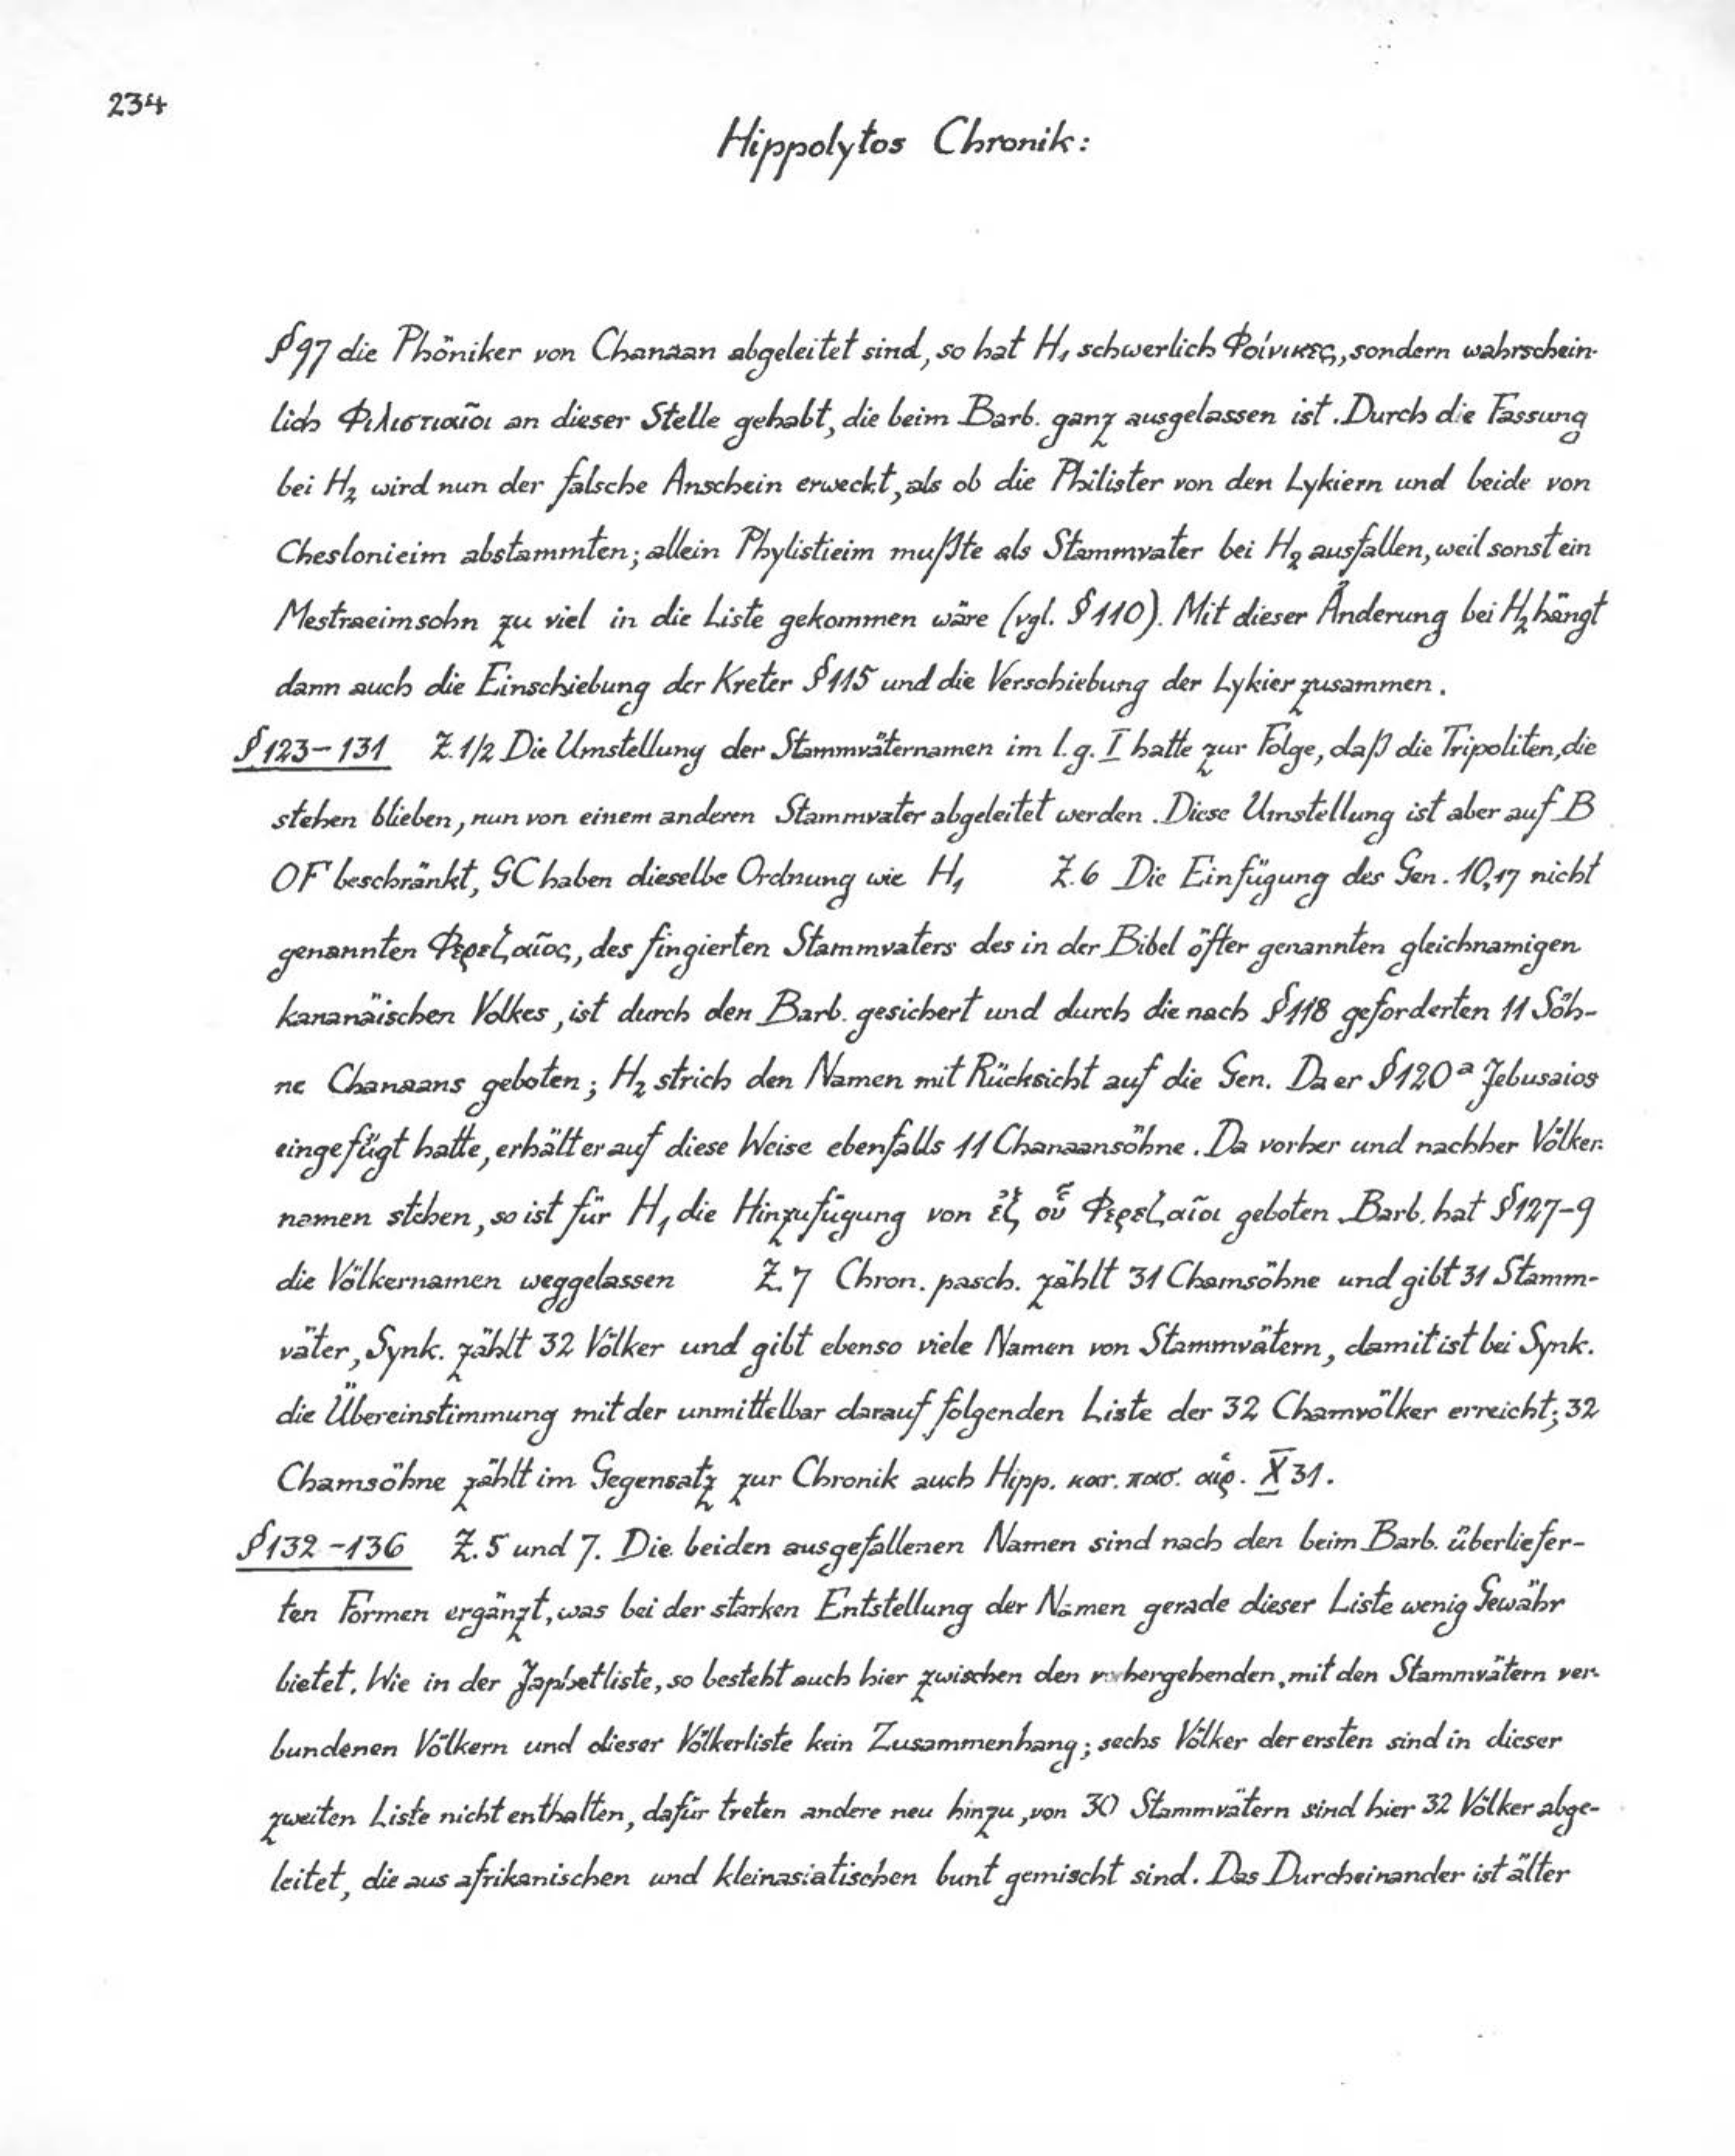 234
Hippolytos Chronik:
§97 die Phöniker von Chanaan abgeleitet sind, so hat H₁ schwerlich Φοίνικες, sondern wahrschein-
lich Φιλιστιαῖοι an dieser Stelle gehabt, die beim Barb. ganz ausgelassen ist. Durch die Fassung
bei H₂ wird nun der falsche Anschein erweckt, als ob die Philister von den Lykiern und beide von
Cheslonieim abstammten; allein Phylistieim mußte als Stammvater bei H₂ ausfallen, weil sonst ein
Mestraeimsohn zu viel in die Liste gekommen wäre (vgl. §110). Mit dieser Änderung bei H₂ hängt
dann auch die Einschiebung der Kreter §115 und die Verschiebung der Lykier zusammen.
§123-131 Z. 1/2 Die Umstellung der Stammväternamen im l. g. I hatte zur Folge, daß die Tripoliten, die
stehen blieben, nun von einem anderen Stammvater abgeleitet werden. Diese Umstellung ist aber auf B
OF beschränkt, GC haben dieselbe Ordnung wie H₁ Z. 6 Die Einfügung des Gen. 10,17 nicht
genannten Φερεζαῖος, des fingierten Stammvaters des in der Bibel öfter genannten gleichnamigen
kananäischen Volkes, ist durch den Barb. gesichert und durch die nach §118 geforderten 11 Söh-
ne Chanaans geboten; H₂ strich den Namen mit Rücksicht auf die Gen. Da er §120ᵃ Jebusaios
eingefügt hatte, erhält er auf diese Weise ebenfalls 11 Chanaansöhne. Da vorher und nachher Völker-
namen stehen, so ist für H₁ die Hinzufügung von ἐξ οὗ Φερεζαῖοι geboten. Barb. hat §127-9
die Völkernamen weggelassen Z. 7 Chron. pasch. zählt 31 Chamsöhne und gibt 31 Stamm-
väter, Synk. zählt 32 Völker und gibt ebenso viele Namen von Stammvätern, damit ist bei Synk.
die Übereinstimmung mit der unmittelbar darauf folgenden Liste der 32 Chamvölker erreicht; 32
Chamsöhne zählt im Gegensatz zur Chronik auch Hipp. κατ. πασ. αἱρ. X 31.
§132-136 Z. 5 und 7. Die beiden ausgefallenen Namen sind nach den beim Barb. überliefer-
ten Formen ergänzt, was bei der starken Entstellung der Namen gerade dieser Liste wenig Gewähr
bietet. Wie in der Japhetliste, so besteht auch hier zwischen den vorhergehenden, mit den Stammvätern ver-
bundenen Völkern und dieser Völkerliste kein Zusammenhang; sechs Völker der ersten sind in dieser
zweiten Liste nicht enthalten, dafür treten andere neu hinzu, von 30 Stammvätern sind hier 32 Völker abge-
leitet, die aus afrikanischen und kleinasiatischen bunt gemischt sind. Das Durcheinander ist älter